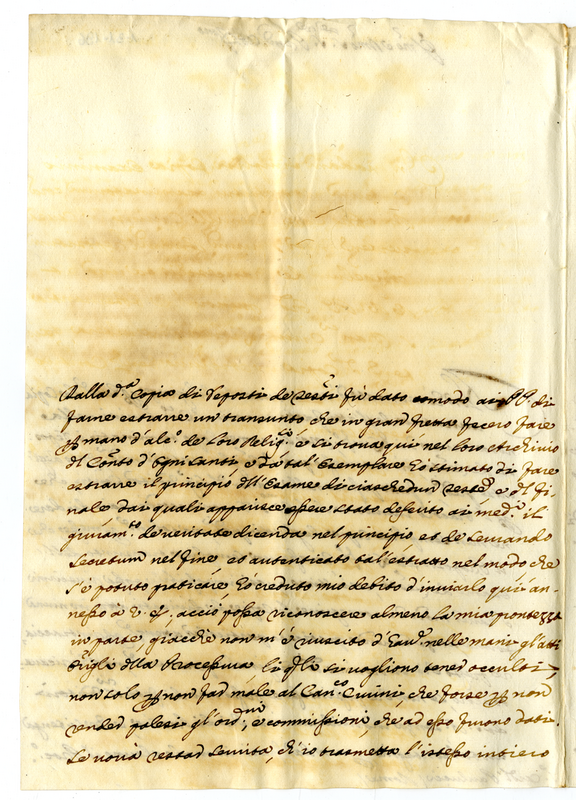 Dalla d.a Copia di deposti de Testi fù dato comodo ai PP. di
farne estrarre un transunto che in gran fretta fecero fare
per mano d'alc.o de loro Relig.si e si trova qui nel loro Archivio
del Con.to d'Ognisanti e da tal'Esemplare hò stimato di fare
estrarre il principio dell'Esame di ciaschedun Teste, e del fi-
nale dai quali apparisce essere stato deferito ai med.i il
giuram.to de veritate dicenda nel principio et de servando
secretum nel fine et autenticato tal'estratto nel modo che
s'è potuto praticare, hò creduto mio debito d'inviarlo qui an-
nesso à V. S., acciò possa riconoscere almeno la mia prontezza
in parte, giacche non m'è riuscito d'haver nelle mani gl'atti
della Processura li quali si vogliono tener occulti,
non solo per non far male al Can.co che forse per non
render palesi gl'ordini, e commissioni, che ad esso furono dati.
Se vorrà restar servita, ch'io trasmetta l'istesso intiero